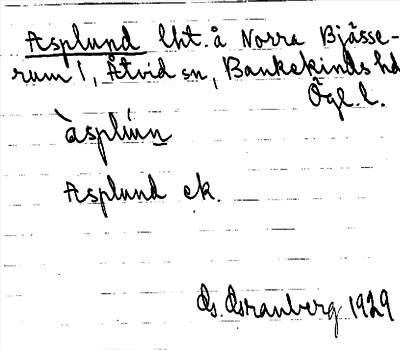 Asplund lht. å Norra Bjässe-
rum 1, Åtvid sn, Bankekinds hd
Ögl. l.
àsplínn
Asplund ek.
Cs. Granberg 1929